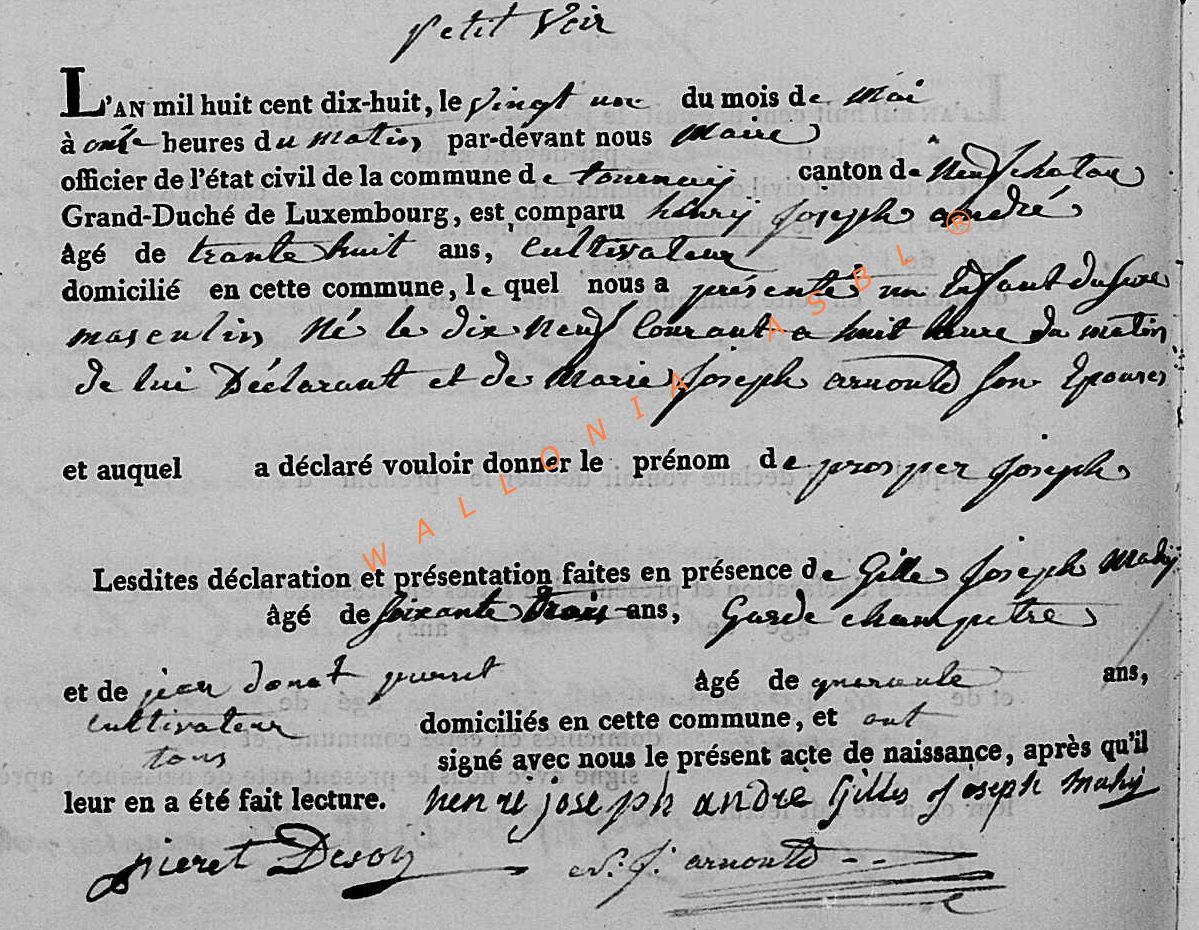 petit Voir
L'AN mil huit cent dix-huit, le vingt une du mois de Mai
à onse heures du matin par-devant nous Maire
officier de l'état civil de la commune de tournay canton de Neufchatau
Grand-Duché de Luxembourg, est comparu henry Joseph andré
âgé de trante huit ans, Cultivateur
domicilié en cette commune, le quel nous a présenté un Enfant du sexe
masculin Né le dix Neuf Courant a huit heure du matin
de lui Déclarant et de Marie Joseph arnould son Epouse
et auquel a déclaré vouloir donner le prénom de prosper Joseph
Lesdites déclaration et présentation faites en présence de Gille Joseph Mahy
âgé de soixante trois ans, Garde champetre
et de jean donat âgé de quarante ans,
cultivateur domiciliés en cette commune, et ont
tous signé avec nous le présent acte de naissance, après qu'il
leur en a été fait lecture. henri joseph andre Gilles Joseph Mahy
pieret J. arnould
WALLONIA ASBL ®